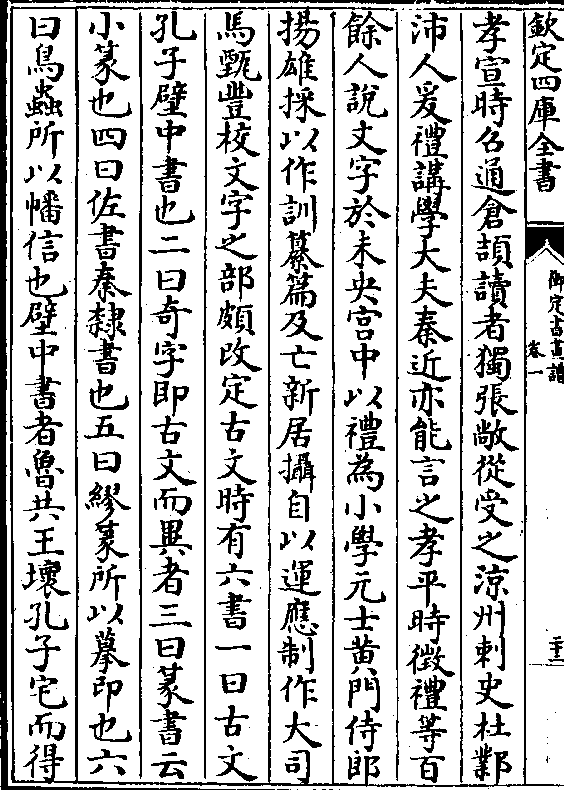 欽定四庫全書
御定書畫譜
卷一
二十二
孝宣時召通倉頡讀者獨張敞從受之涼州刺史杜鄴
沛人爰禮講學大夫秦近亦能言之孝平時徵禮等百
餘人說文字於未央宫中以禮為小學元士黄門侍郎
揚雄採以作訓纂篇及亡新居攝自以運應制作大司
馬甄豐校文字之部頗改定古文時有六書一曰古文
孔子壁中書也二曰奇字即古文而異者三曰篆書云
小篆也四曰佐書秦隸書也五曰繆篆所以摹印也六
曰鳥蟲所以幡信也壁中書者魯共王壞孔子宅而得